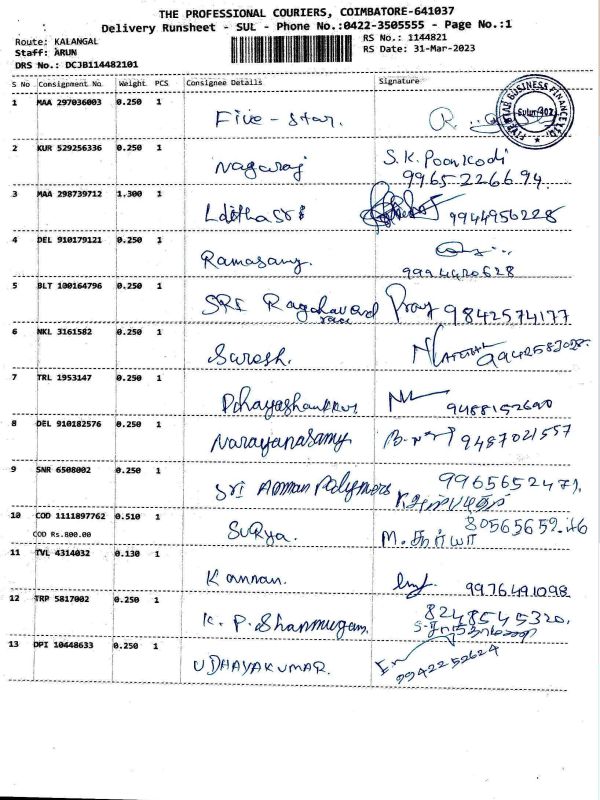 THE PROFESSIONAL COURIERS, COIMBATORE-641037
Delivery Runsheet - SUL - Phone No.:0422-3505555 - Page No.:1
Route: KALANGAL RS No.: 1144821
Staff: ARUN RS Date: 31-Mar-2023
DRS No.: DCJB114482101
S No Consignment No. Weight PCS Consignee Details Signature
1 MAA 297036003 0.250 1 Five-Star.
FIVE STAR BUSINESS FINANCE LTD.
2 KUR 529256336 0.250 1 Nagaraj S.K. Poonkodi
99652266.94.
3 MAA 298739712 1.300 1 9944956228
4 DEL 910179121 0.250 1 Ramasamy.
5 BLT 100164796 0.250 1 SRI 9842574177
6 NKL 3161582 0.250 1 Suresh.
7 TRL 1953147 0.250 1
8 DEL 910182576 0.250 1 Narayanasamy 9487021557
9 SNR 6508002 0.250 1 Sri Amman Polymers 9965652471,
10 COD 1111897762 0.510 1 Surya. M. சூர்யா
COD Rs.800.00
11 TVL 4314032 0.130 1 Kannan. 9976491098
12 TRP 5817002 0.250 1 K. P. Shanmugam. 8248545320,
13 DPI 10448633 0.250 1 UDHAYAKUMAR. 9942252624